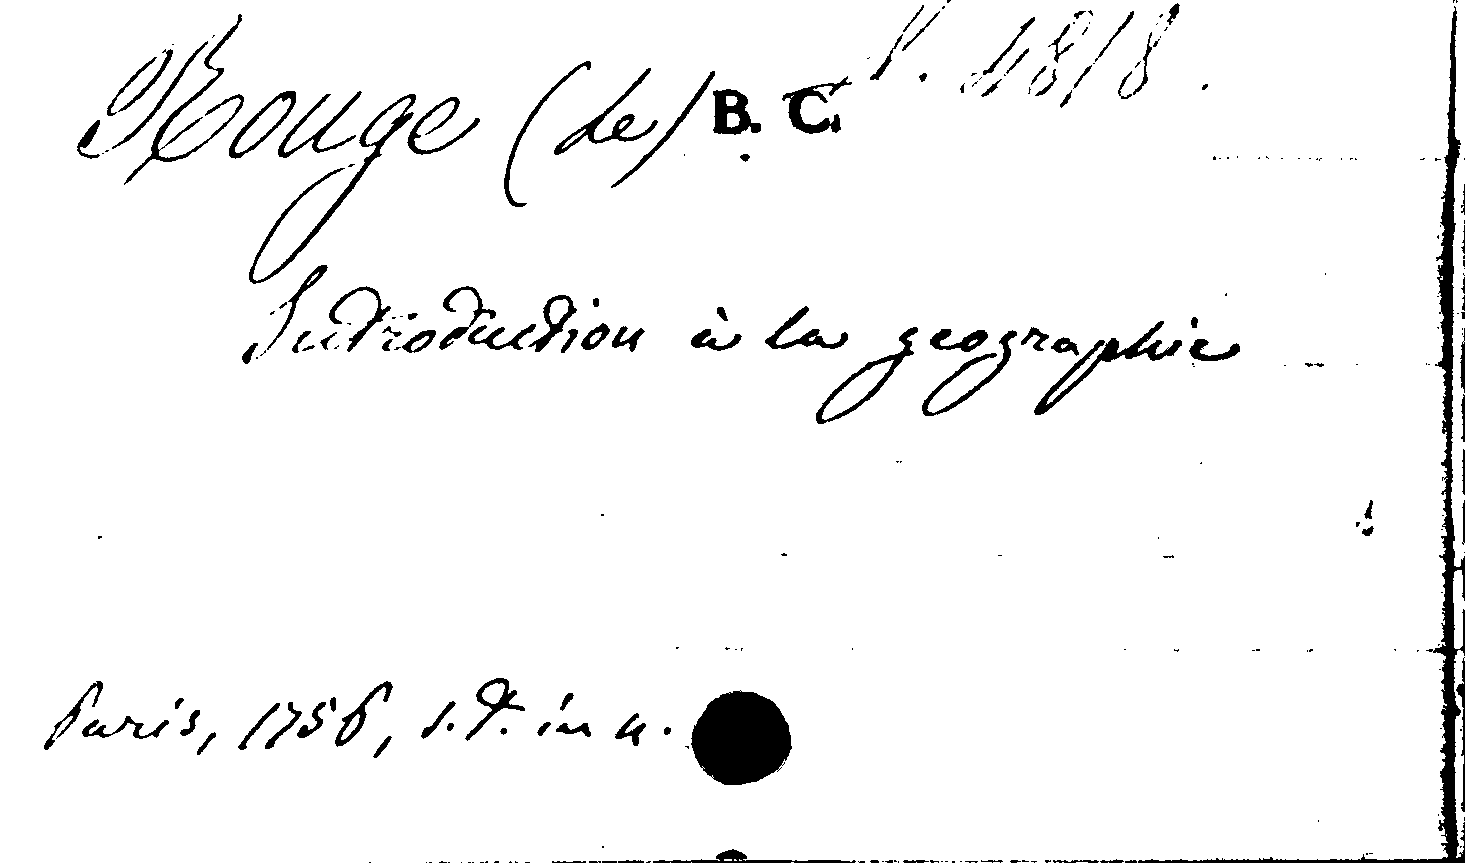 Rouge (de) B. C. P. 4818.
Introduction à la geographie
Paris, 1756, s.d. in 4.